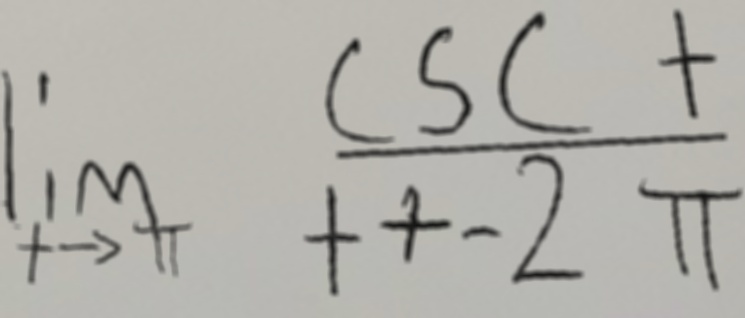 lim t→π csc t / t + -2π